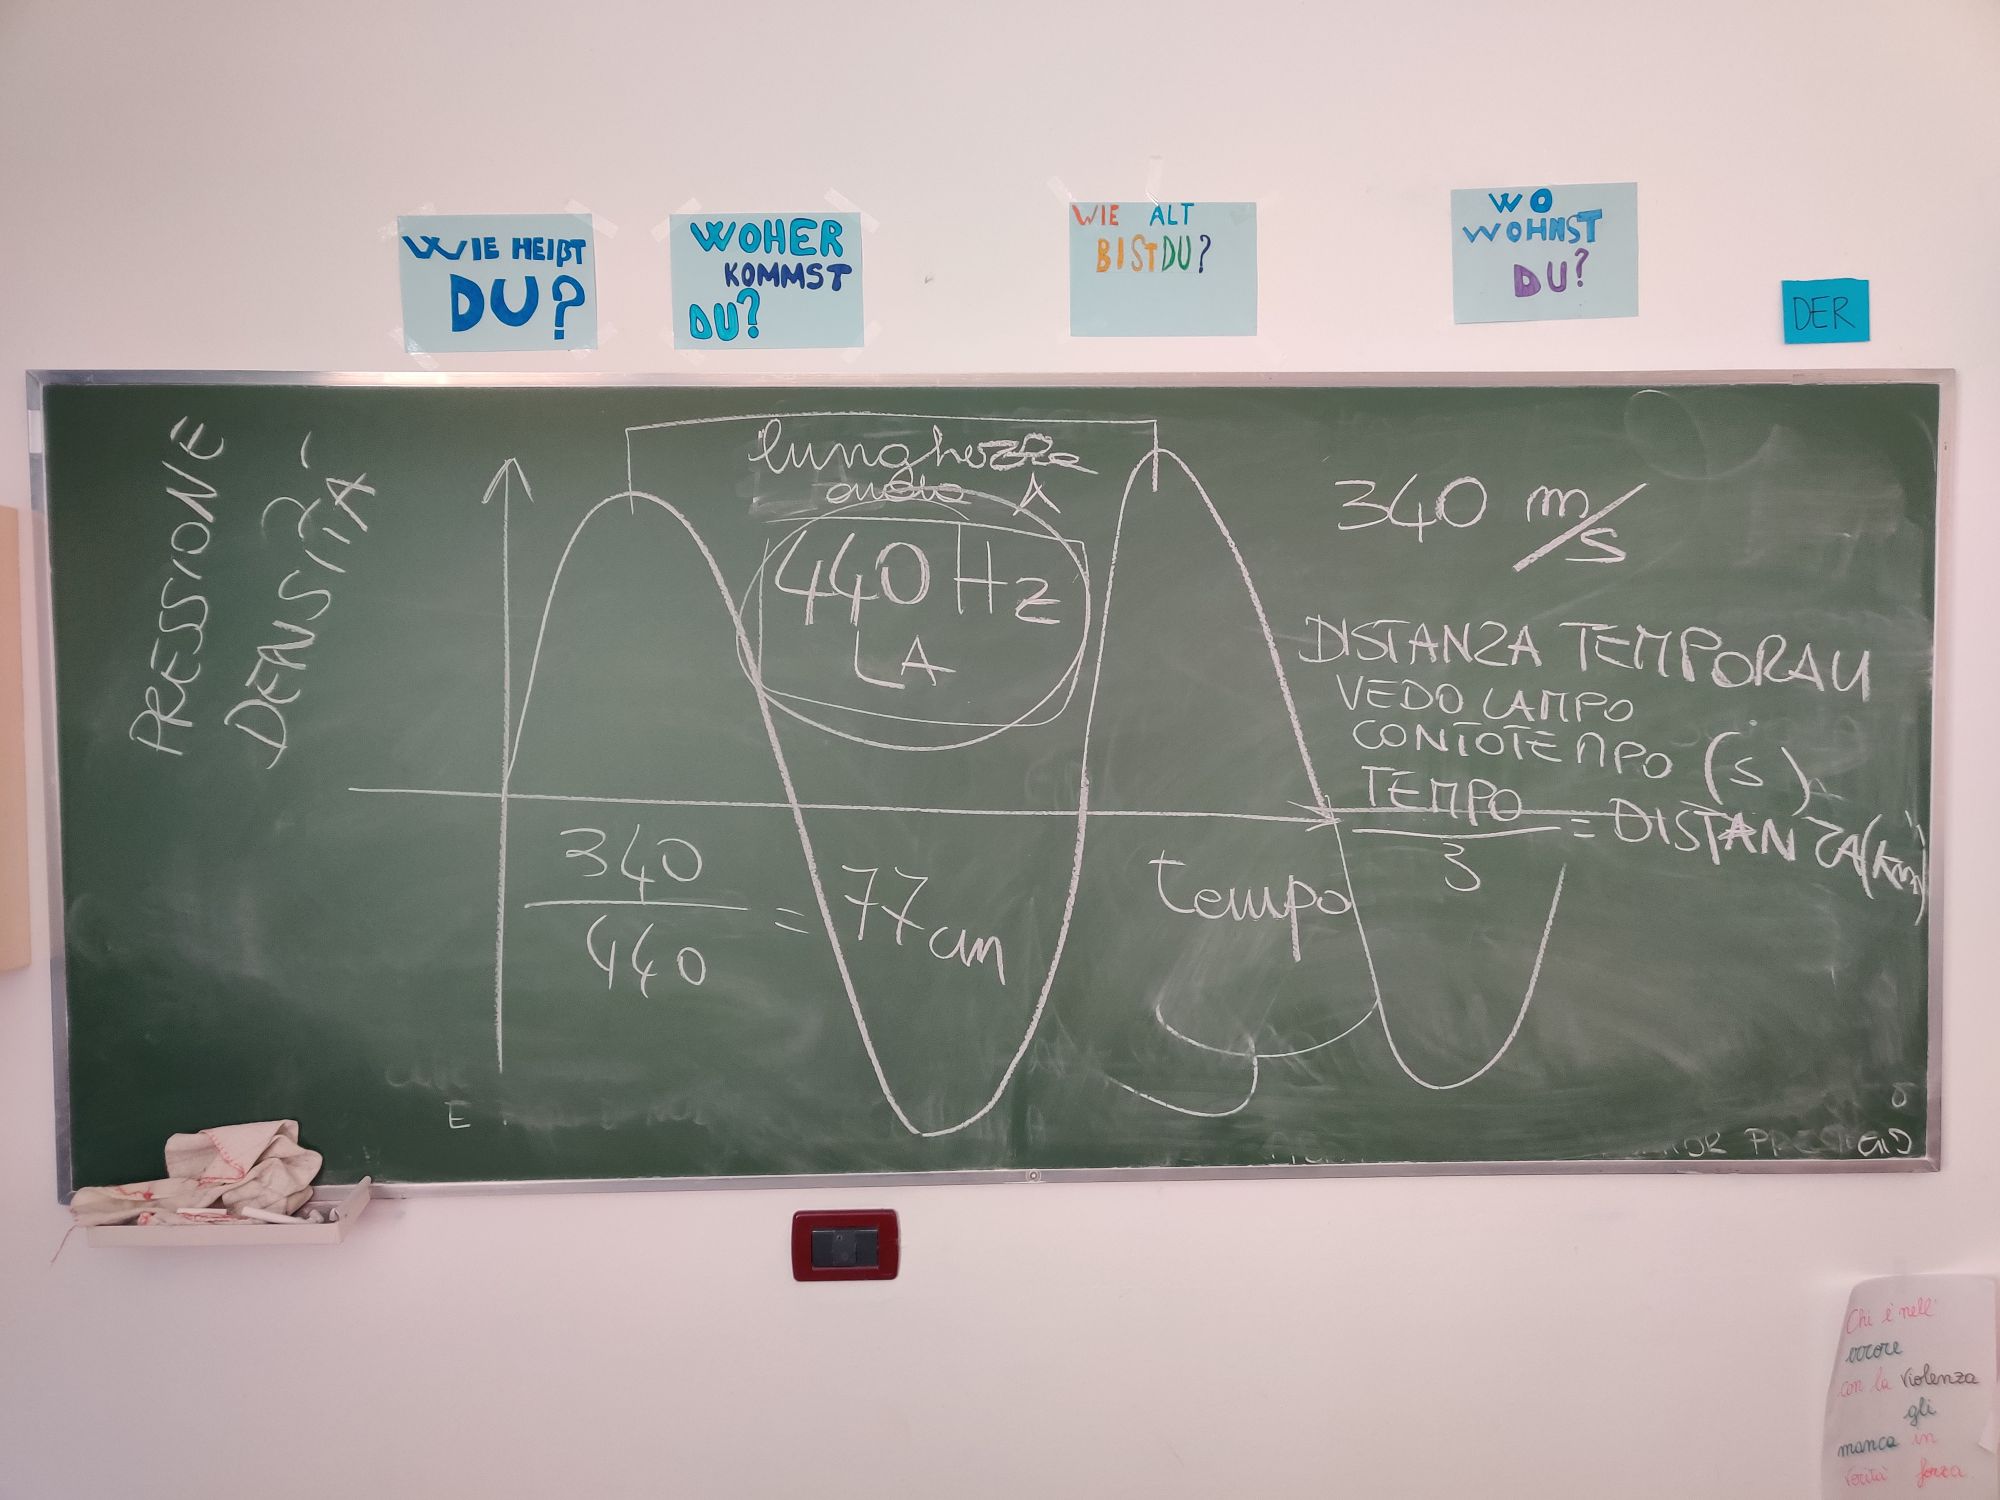 WIE HEIßT
DU?
WOHER
KOMMST
DU?
WIE ALT
BIST DU?
WO
WOHNST
DU?
DER
PRESSIONE
DENSITÀ
lunghezza
onda λ
440 Hz
LA
340 m/s
DISTANZA TEMPORALI
VEDO LAMPO
CONTO TEMPO (s)
TEMPO
3
= DISTANZA (km)
340
440
= 77 cm
tempo
E
Chi è nell'
errore
con la violenza
gli
manca in
verità forza